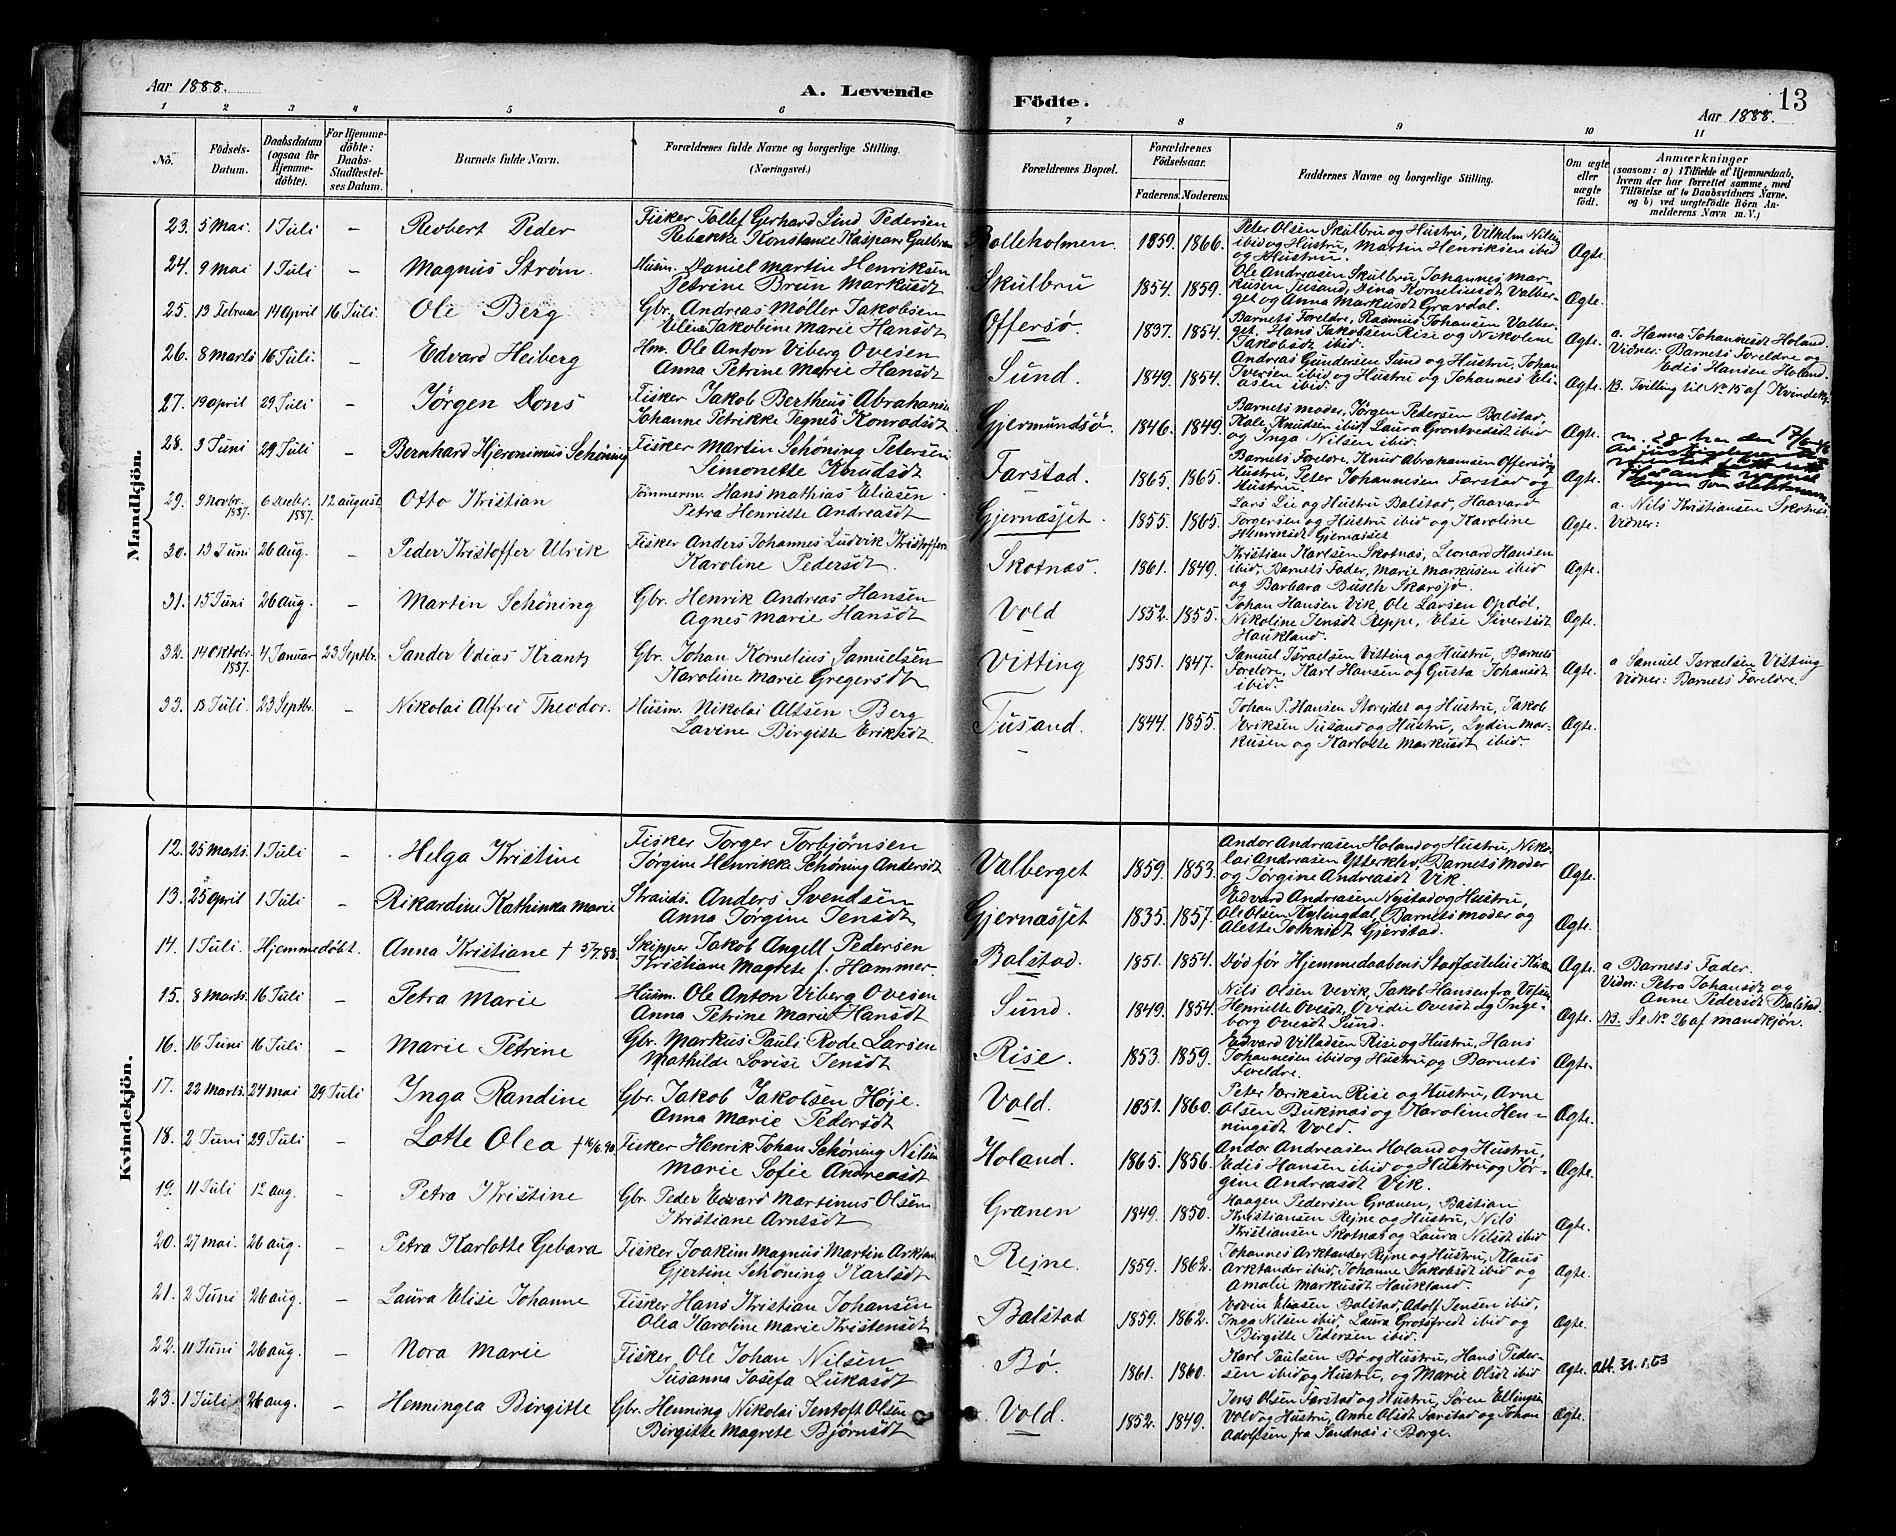 Aar 1888.
A. Levende
Födte.
13
Aar 1888.
1 2 3 4 5 6 7 8 9 10 11
No.
Födsels-Datum.
Daabsdatum (ogsaa for Hjemme-döbte).
For Hjemme-döbte: Daabs-Stadfæstel-ses Datum.
Barnets fulde Navn.
Forældrenes fulde Navne og borgerlige Stilling. (Næringsvei.)
Forældrenes Bopæl.
Forældrenes Födselsaar.
Faderens. Moderens.
Faddernes Navne og borgerlige Stilling.
Om ægte eller uægte födt.
Anmærkninger
(saasom: a) i Tilfælde af Hjemmedaab, hvem der har forrettet samme, med Tilföielse af to Daabsvidners Navne, og b) ved uægtefödte Börn Anmelderens Navn m. V.)
Mandkjön.
23. 5 Mai. 1 Juli – Robert Peder Fisker Tollef Gerhard Sind Pedersen Bolleholmen. 1859. 1866. Peter Olsen Skulbru og Hustru, Vilhelm Nilsen Ægte.
Rebakke Konstance Kaspara ibid og Hustru, Martin Henriksen ibid
og Hustru.
24. 9 Mai 1 Juli – Magnus Strøm. Husm. Daniel Martin Henriksen Skulbru 1854. 1859. Ole Andreasen Skulbru, Johannes Mar- Ægte.
Petrine Brun Markusdt kusen Tusand, Dina Korneliusdt Valber-
get og Anna Markusdt Gravdal.
25. 13 Februar 14 April 16 Juli. Ole Berg Gbr. Andreas Møller Jakobsen Offersø. 1837. 1854. Barnets Foreldre, Rasmus Johansen Valber- Ægte. a. Hanna Johannesdt Holand.
Elen Jakobine Marie Hansdt get, Hans Jakobsen Rise og Nikoline Vidner: Barnets Foreldre og
Jakobsdt ibid. Edis Hansen Holand.
26. 8 Marts 16 Juli. – Edvard Heiberg Hm. Ole Anton Viberg Ovesen Sund. 1849. 1854. Andreas Gundersen Sund og Hustru, Johan Ægte. NB. Tvilling til No 15 af Kvindekj.
Anna Petrine Marie Hansdt Iversen ibid og Hustru og Johannes Eli-
asen ibid.
27. 19 April 29 Juli – Jørgen Dons Fisker Jakob Bertheus Abrahamsen Gjermundsø. 1846. 1849. Barnets Moder, Jørgen Pedersen Balstad, Ægte.
Johanne Petrikke Tegnes Konradsdt Kale Knudsen ibid, Laura Grontvedsdt ibid
og Inga Nilsen ibid.
28. 3 Juni 29 Juli – Bernhard Hjeronimus Schöning Fisker Martin Schöning Petersen Farstad. 1865. 1865. Barnets Foreldre, Knud Abrahamsen Offersø og Ægte. nr. 28 har den 17/6-46
Simonette Knudsdt Hustru, Peter Johannesen Farstad og av justisdepartementet
Hustru.
29. 9 Novbr. 1887. 6 Decbr. 1887. 12 August Otto Kristian Tømmerm. Hans Mathias Eliasen Gjernæsset. 1855. 1865. Lars Lie og Hustru Balstad, Haavard Ægte. a. Nils Kristiansen Skotnes.
Petra Henriette Andreasdt Torgersen og Hustru ibid og Karoline Vidner:
Henriksdt Gjernæsset
30. 13 Juni 26 Aug. – Peder Kristoffer Ulrik Fisker Anders Johannes Ludvik Kristoffers. Skotnæs. 1861. 1849. Kristian Karlsen Skotnæs, Leonard Hansen Ægte.
Karoline Pedersdt ibid, Barnets Fader, Marie Markusen ibid
og Barbara Busch Skarsjø.
31. 15 Juni 26 Aug. – Martin Schöning Gbr. Henrik Andreas Hansen Vold 1852. 1855. Johan Hansen Vik, Ole Larsen Opdøl, Ægte.
Agnes Marie Hansdt Nikoline Jensdt Reppe, Else Sivertsdt
Haukland.
32. 14 Oktobr. 1887. 4 Januar 23 Septbr. Sander Edias Krantz Gbr. Johan Kornelius Samuelsen Vitting 1851. 1847. Samuel Israelsen Vitting og Hustru, Barnets Ægte. a Samuel Israelsen Vitting
Karoline Marie Gregersdt Foreldre, Karl Hansen og Gusta Johansdt Vidner: Barnets Foreldre.
ibid.
33. 13 Juli. 23 Septbr. – Nikolai Alfred Theodor. Husm. Nikolai Altsen Berg Tusand. 1844. 1855. Johan P. Hansen Storeidet og Hustru, Jakob Ægte.
Lavine Birgitte Eriksdt. Eriksen Tusand og Hustru, Lydia Mar-
kusen og Karlotte Markusdt ibid.
Kvindekjön.
12. 25 Marts. 1 Juli – Helga Kristine Fisker Torger Torbjørnsen Valberget 1859. 1853. Andor Andreasen Holand og Hustru, Niko- Ægte.
Jørgine Henrikke Schöning Andersdt lai Andreasen Ytterklev, Barnets Moder
og Jørgine Andreasdt Vik.
13. 25 April 1 Juli – Rikardine Kathinka Marie Strands. Anders Svendsen Gjernæsset 1835. 1857. Edvard Andreasen Nystad og Hustru, Ægte.
Anna Jørgine Jensdt Ole Olsen Kylingdal, Barnets Moder og
Aleste Gjerstad.
14. 1 Juli. Hjemmedøbt. Anna Kristiane † 5/7.88. Skipper Jakob Angell Pedersen Balstad. 1851. 1854. Død før Hjemmedaabens Stadfæstelse i Kirken Ægte. a Barnets Fader.
Kristiane Magrete f. Hammer. Vidn: Petra Johansdt og
Anne Pedersdt Balstad.
15. 8 Marts 16 Juli – Petra Marie Husm. Ole Anton Viberg Ovesen Sund. 1849. 1854. Nils Olsen Vevik, Jakob Hansen fra Ægte. NB. Se No. 26 af Mandkjøn.
Anna Petrine Marie Hansdt Henriette Ovesdt, Ovedie Ovesdt og Inge-
borg Ovesdt Sund.
16. 16 Juni 16 Juli – Marie Petrine Gbr. Markus Pauli Rode Larsen Rise. 1853. 1859. Edvard Villadsen Rise og Hustru, Hans Ægte.
Mathilde Lovise Jensdt Johannesen ibid og Hustru og Barnets
Foreldre.
17. 22 Marts. 24 Mai 29 Juli Inga Randine Gbr. Jakob Jakobsen Høje. Vold. 1851. 1860. Peter Eriksen Rise og Hustru, Arne Ægte.
Anna Marie Pedersdt Olsen Buksnæs og Karoline Hen-
ningsdt Vold.
18. 2 Juni 29 Juli – Lotte Olea † 16/6.90 Fisker Henrik Johan Schöning Nilsen Holand. 1865. 1856. Andor Andreasen Holand og Hustru, Ægte.
Marie Sofie Andreasdt Edis Hansen ibid og Hustru og Jør-
gine Andreasdt Vik.
19. 11 Juli 12 Aug. – Petra Kristine Gbr. Peder Edvard Martinus Olsen Grænen 1849. 1850. Haagen Pedersen Grænen, Bastian Ægte.
Kristiane Arntsdt Kristiansen Rejne og Hustru, Nils
Kristiansen Skotnæs og Laura Nilsdt ibid
20. 27 Mai. 26 Aug. – Petra Karlotte Gebara Fisker Joakim Magnus Martin Arktan Rejne. 1859. 1862. Johannes Arktander Rejne og Hustru, Klaus Ægte.
Gjertine Schöning Karlsdt Arktander ibid, Johanne Jakobsdt ibid og
Amalie Markusdt Haukland.
21. 2 Juni 26 Aug. – Laura Elise Johanne Fisker Hans Kristian Johansen Balstad 1859. 1862. Edvin Eliasen Balstad, Adolf Jensen ibid, Ægte.
Olea Karoline Marie Kristensdt Inga Nilsen ibid, Laura ibid og
Birgitte Pedersen ibid.
22. 11 Juni 26 Aug. – Nora Marie Fisker Ole Johan Nilsen Bø. 1861. 1860. Karl Paulsen Bø og Hustru, Hans Peder- Ægte. att. 31.1.53
Susanna Josefa Lukasdt sen ibid og Hustru, og Marie Olsdt ibid
23. 1 Juli 26 Aug. – Henningea Birgitte Gbr. Henning Nikolai Jentoft Olsen Vold. 1852. 1849. Jens Olsen Farstad og Hustru, Søren Ellingsen Ægte.
Birgitte Magrete Bjørnsdt Vold og Hustru, Anne Olsdt Farstad og Johan
Adolfsen fra Sandnæs i Borge.